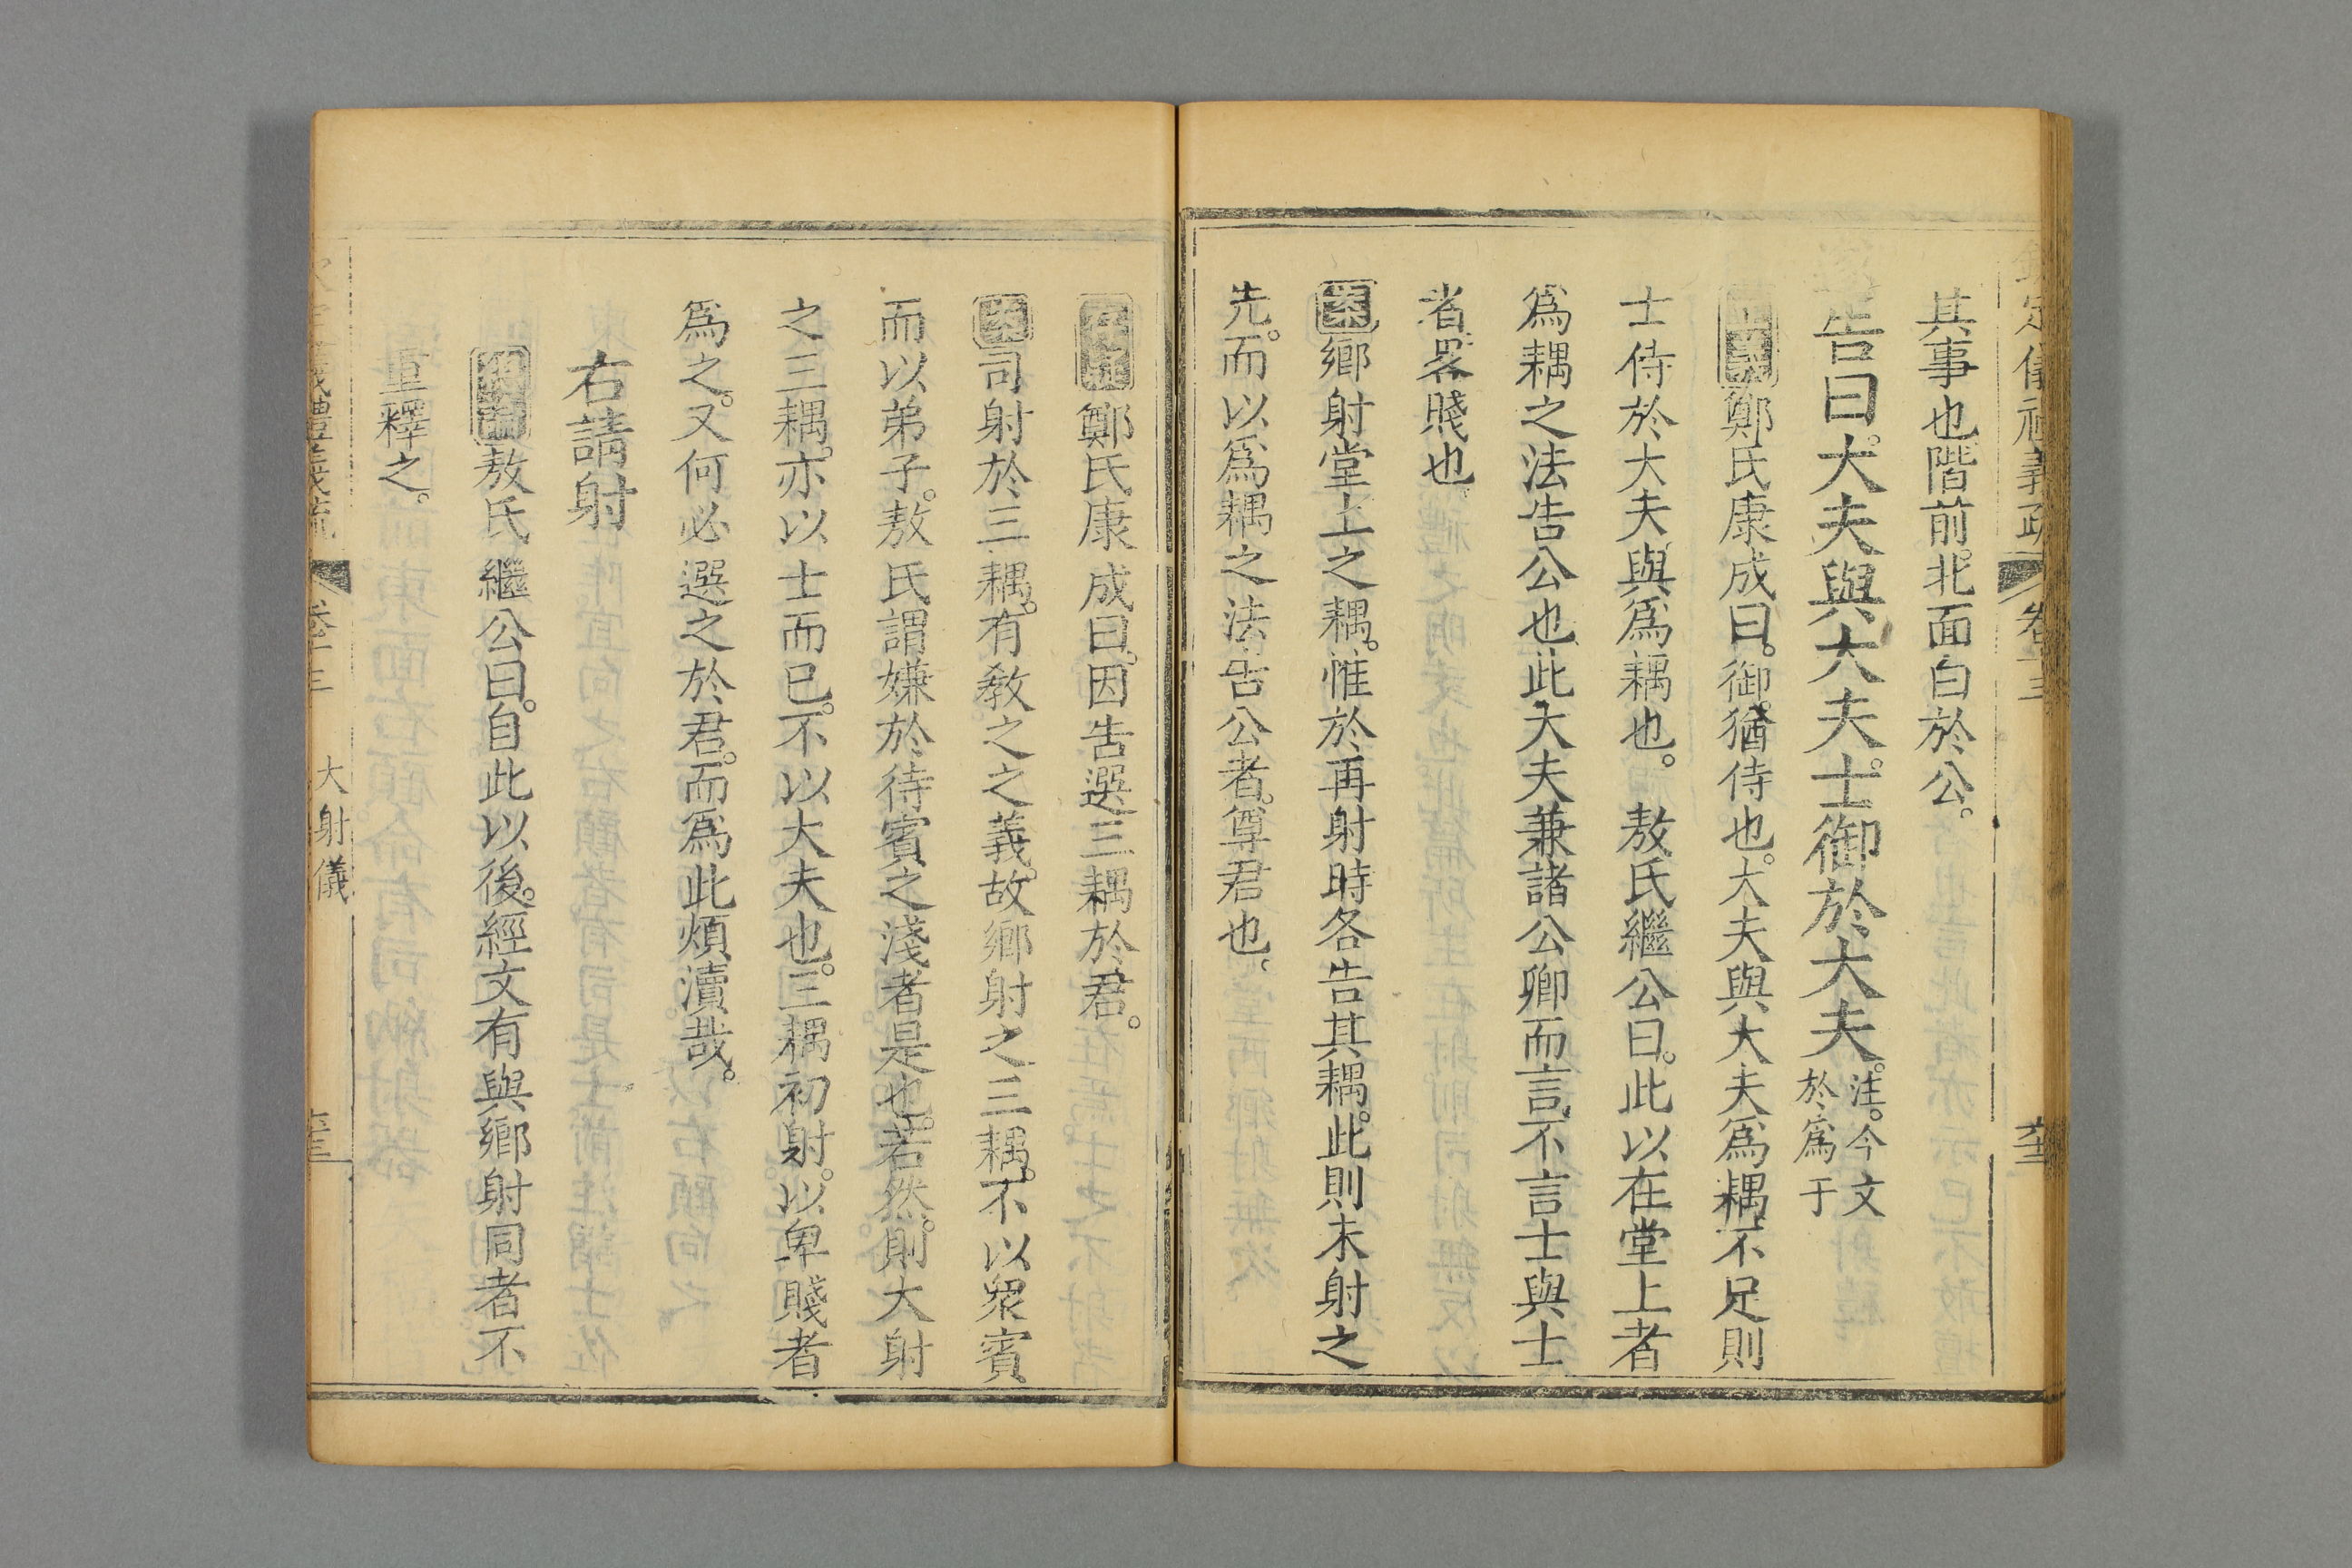 欽定儀禮義疏 卷十三
其事也階前北面白於公。
遂告曰大夫與大夫。士御於大夫。注。今文於爲于
正義鄭氏康成曰。御。猶侍也。大夫與大夫爲耦不足則
士侍於大夫與爲耦也。敖氏繼公曰。此以在堂上者
爲耦之法告公也此大夫兼諸公卿而言不言士與士
者畧賤也
案鄉射堂上之耦。惟於再射時各告其耦。此則未射之
先。而以爲耦之法告公者。尊君也。
存疑鄭氏康成曰。因告選三耦於君。
案司射於三耦。有敎之之義。故鄉射之三耦。不以衆賓
而以弟子。敖氏謂嫌於待賓之淺者是也。若然。則大射
之三耦。亦以士而已。不以大夫也。三耦初射。以卑賤者
爲之。又何必選之於君。而爲此煩瀆哉。
右請射
通論敖氏繼公曰。自此以後。經文有與鄉射同者不
重釋之。
欽定儀禮義疏 卷十三 大射儀